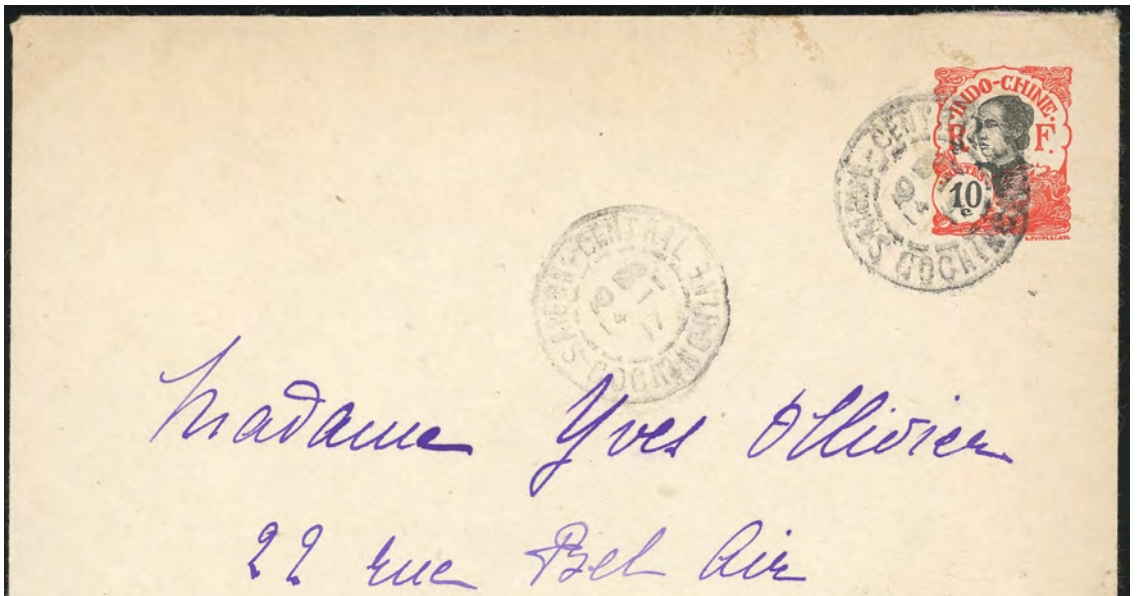 INDO-CHINE
R F.
POSTES
10
c
SAIGON-CENTRAL
COCHINCHINE
SAIGON-CENTRAL
COCHINCHINE
17
Madame Yves Ollivier
22 rue Bel Air